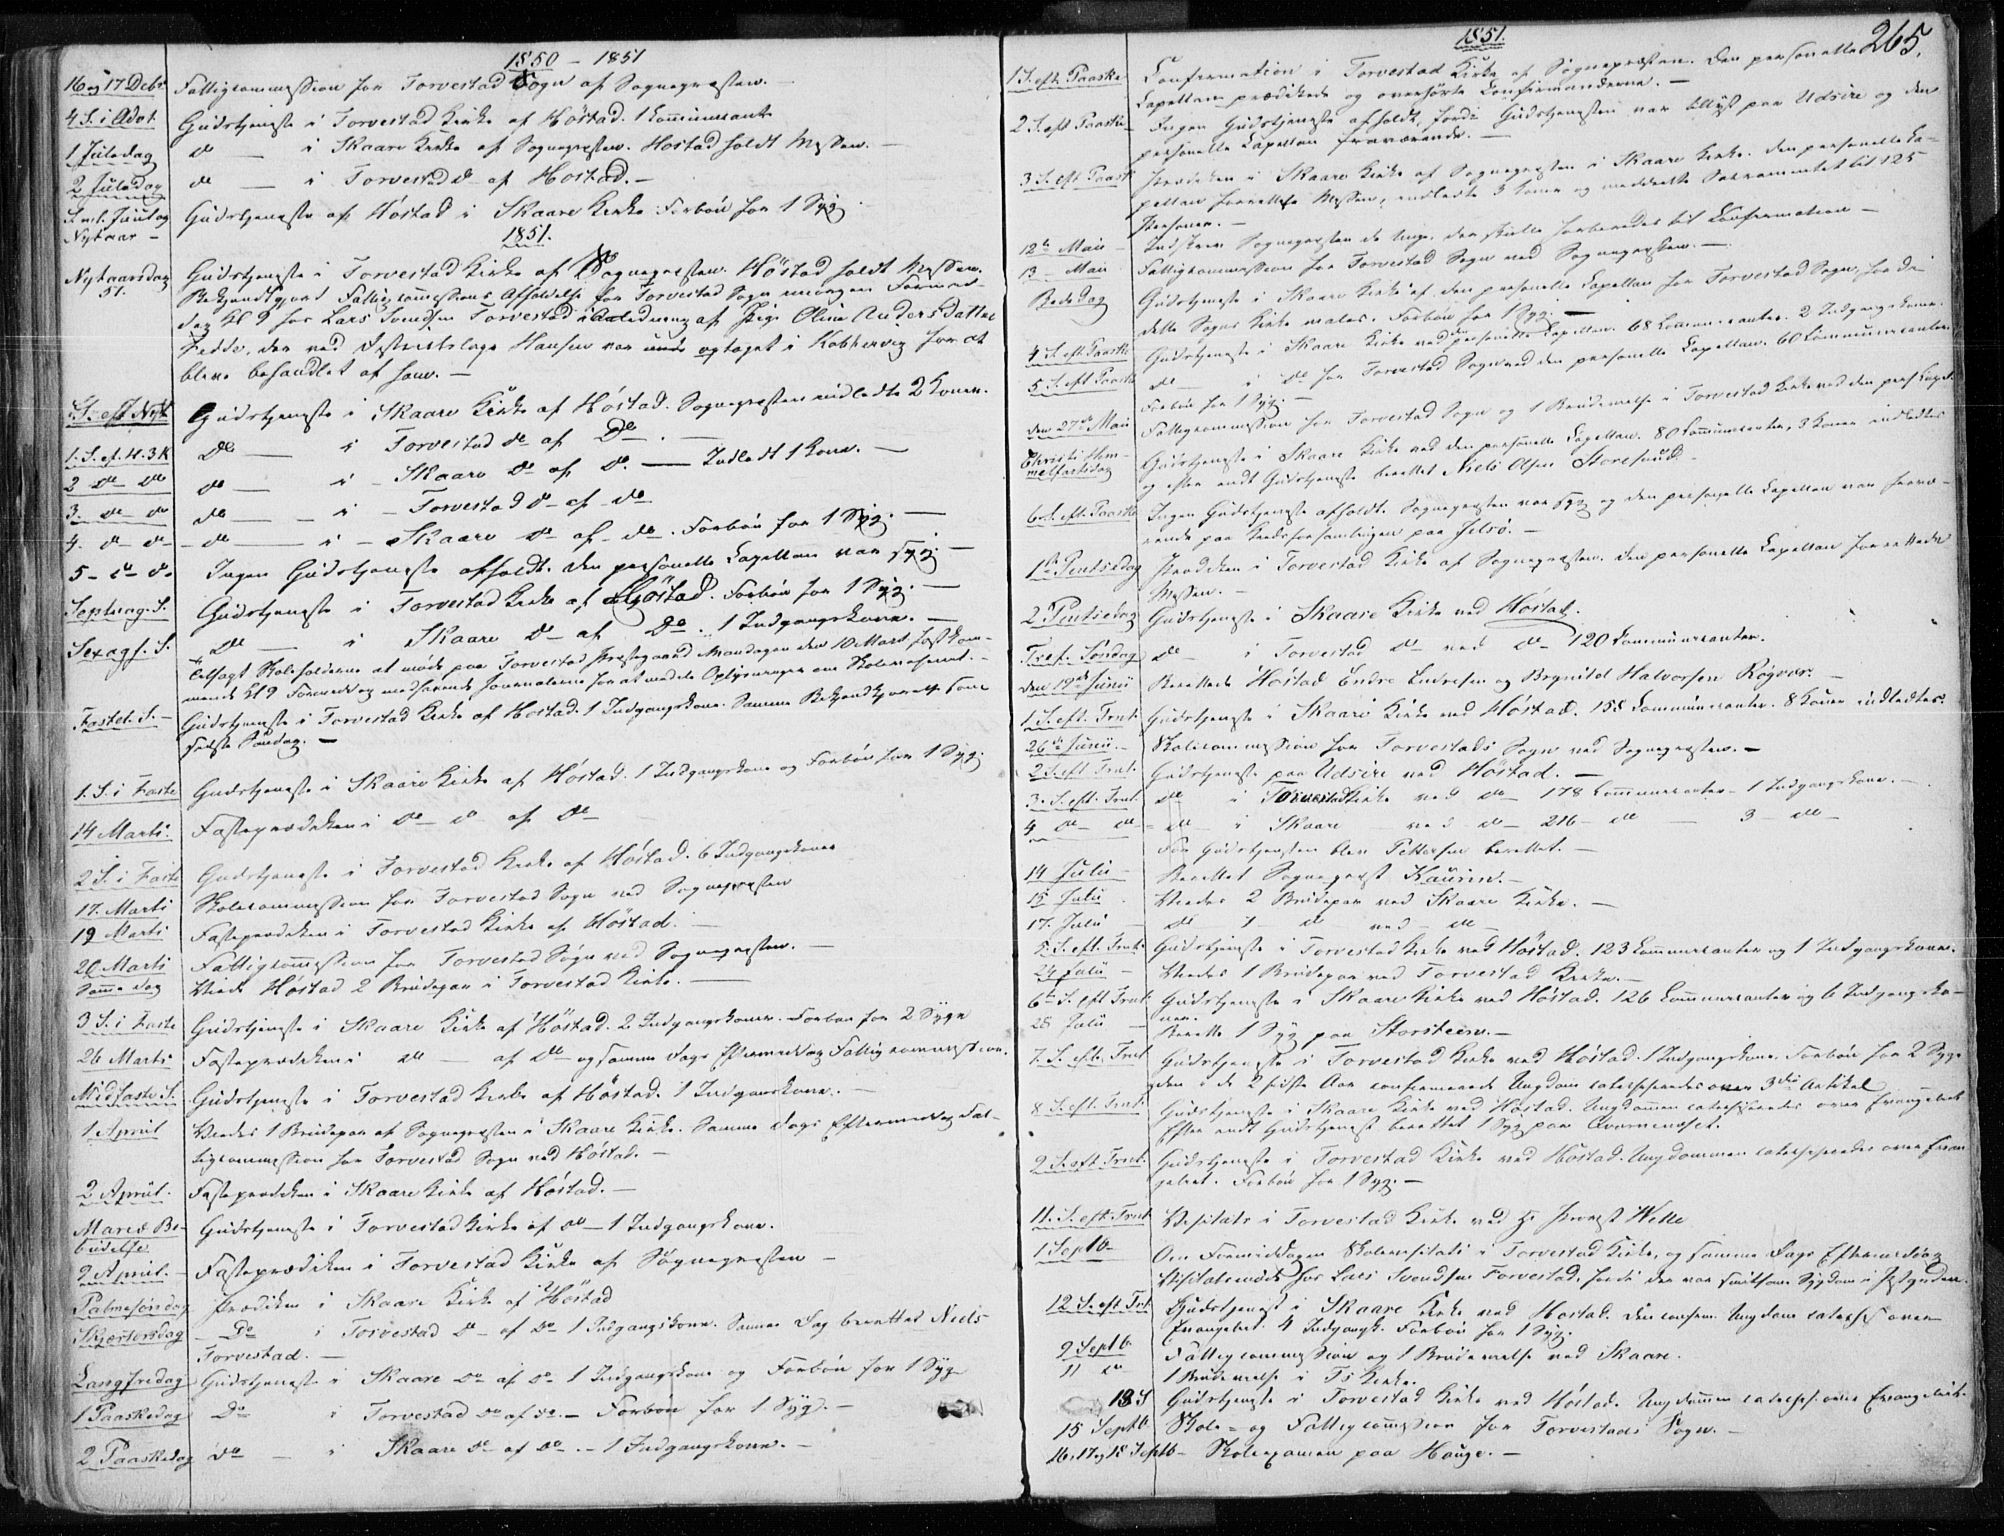 1850 - 1851
16 og 17 Debr. Fattigcommission for Torvestad Sogn af Sognepræsten. —
4 S. i Advt. Gudstjeneste i Torvestad Kirke af Høstad. 1 Communicant
1 Juledag do — i Skaare Kirke af Sognepræsten. Høstad holdt Messen. —
2 Juledag do — i Torvestad do af Høstad. —
S. ml. Juul og Gudstjeneste af Høstad i Skaare Kirke. Forbøn for 1 Syg.
Nytaar —
1851.
Nytaarsdag Gudstjeneste i Torvestad Kirke af Sognepræsten. Høstad holdt Messen.
51. Bekjendtgjort Fattigcommissions Afholdelse for Torvestad Sogn imorgen Formid-
dag Kl 9 hos Lars Svendsen Torvestad i Anledning af Pige Oline Andersdatter
Fedde, der ved Districtslæge Hansen var optaget i Kobbervig for at
blive behandlet af ham. —
S. eft Nyt Gudstjeneste i Skaare Kirke af Høstad. Sognepræsten indledte 2 Koner.
1. S. ef. H. 3 K do — i Torvestad do af Do. —
2 do do do — i Skaare do af do. — Indledt 1 Kone. —
3. do do do — i — Torvestad do af do
4. do do — do — i — Skaare do af do. Forbøn for 1 Syg. —
5 — do do Ingen Gudstjeneste afholdt. Den personelle Capellan var syg. —
Septuag. S. Gudstjeneste i Torvestad Kirke af Høstad. Forbøn for 1 Syg. —
Sexags. S. Do — i Skaare do af Do. 1 Indgangskone. —
Tilsagt Skoleholderne at møde paa Torvestad Præstegaard Mandagen den 10 Mart førstkom-
mende Kl 9 Formiddag medhavende Journalerne for at meddele Oplysninger om Skolevæsenet. —
Fastel. S. — Gudstjeneste i Torvestad Kirke af Høstad. 1 Indgangskone. Samme Bekjendtgjørelse som
sidste Søndag. —
1. S. i Faste Gudstjeneste i Skaare Kirke af Høstad. 1 Indgangskone og Forbøn for 1 Syg.
14 Marti. Fasteprædiken i do do af do
2 S. i Faste Gudstjeneste i Torvestad Kirke af Høstad. 6 Indgangskoner
17. Marti Skolecommission for Torvestad Sogn ved Sognepræsten
19 Marti Fasteprædiken i Torvestad Kirke af Høstad. —
20 Marti Fattigcommission for Torvestad Sogn ved Sognepræsten. —
Samme dag Viede Høstad 2 Brudepar i Torvestad Kirke. —
3 S. i Faste Gudstjeneste i Skaare Kirke af Høstad. 2 Indgangskoner. Forbøn for 2 Syge
26 Marti Fasteprædiken i do — af do og samme Dags Eftermiddag Fattigcommission.
Midfaste S. Gudstjeneste i Torvestad Kirke af Høstad. 1 Indgangskone. —
1 April Viedes 1 Brudepar af Sognepræsten i Skaare Kirke. Samme Dags Eftermiddag Fat-
tigcommission for Torvestad Sogn ved Høstad. —
2 April. Fasteprædiken i Skaare Kirke af Høstad. —
Mariæ Be- Gudstjeneste i Torvestad Kirke af do — 1 Indgangskone.
budelse
9 April. — Fasteprædiken i Torvestad Kirke af Sognepræsten —
Palmesøndag Prædiken i Skaare Kirke af Høstad
Skjærtorsdag — Do i Torvestad do — af do 1 Indgangskone. Samme Dag berettet Niels
Torvestad. —
Langfredag Gudstjeneste i Skaare do af do 1 Indgangskone og Forbøn for 1 Syg
1 Paaskedag Do i Torvestad do af do. — Forbøn for 1 Syg. —
2 Paaskedag do — i Skaare do af do. — 1 Indgangskone. —
1851.
265.
1 S. eft. Paaske Confirmation i Torvestad Kirke af Sognepræsten. Den personelle
Capellan prædikede og overhørte Confirmanderne. —
2 S. eft Paaske — Ingen Gudstjeneste afholdt, fordi Gudstjenesten var tillyst paa Udsire og den
personelle Capellan fraværende. —
3 S. eft Paask Prædiken i Skaare Kirke af Sognepræsten i Skaare Kirke. Den personelle Ca-
pellan forrettede Messen, indledte 3 Koner og meddelte Sacramentet til 125
Personer. —
12te Maii — Indskrev Sognepræsten de Unge, der skulle forberedes til Confirmation —
13 — Maii Fattigcommission for Torvestad Sogn ved Sognepræsten. —
Bededag Gudstjeneste i Skaare Kirke af den personelle Capellan for Torvestad Sogn, fordi
dette Sogns Kirke males. Forbøn for 1 Syg. —
4 S. eft Paaske Gudstjeneste i Skaare Kirke ved personelle Capellan. 68 Communicanter. 2 Indgangskoner.
5 S. eft Paaske do — i do for Torvestad Sogn ved den personelle Capellan. 60 Communicanter
Forbøn for 1 Syg. —
den 27de Maii Fattigcommission for Torvestad Sogn og 1 Brudevielse i Torvestad Kirke ved den pers Capel.
Christi Him- Gudstjeneste i Skaare Kirke ved den personelle Capellan. 80 Communicanter, 3 Koner indledtes
melfartsdag og efter endt Gudstjeneste berettet Niels Olsen Storesund. —
6 S. eft. Paaske Ingen Gudstjeneste afholdt. Sognepræsten var syg og den personelle Capellan var fravæ-
rende paa Kredsforsamlingen paa Jelsø. —
1ste Pintsedag Prædiken i Torvestad Kirke af Sognepræsten. Den personelle Capellan forrettede
Messen. —
2 Pintsedag Gudstjeneste i Skaare Kirke ved Høstad.
Tref. Søndag do — i Torvestad do ved do 120 Communicanter.
den 19de Junii Berettede Høstad Endre Endresen og Brynild Halvorsen Røgvær. —
1 S. eft. Trnt. Gudstjeneste i Skaare Kirke ved Høstad. 155 Communicanter. 8 Koner indledtes.
26de Junii. — Skolecommission for Torvestads Sogn ved Sognepræsten. —
2 S. eft Trnt. Gudstjeneste paa Udsire ved Høstad. —
3. S. eft. Trnt. do i Torvestad Kirke ved do — 178 Communicanter — 1 Indgangskone. —
4 do — do — do — i Skaare — ved do — 216 — do — 3 do —
Før Gudstjenesten blev Pettersen berettet. —
14 Julii — Berettet Sognepræst Kaurin. —
15 Julii Viedes 2 Brudepar ved Skaare Kirke. —
17. Julii do 1 do ved do —
5. S. eft. Trnt. Gudstjeneste i Torvestad Kirke ved Høstad. 123 Communicanter og 1 Indgangskone.
24 Julii — Viedes 1 Brudepar ved Torvestad Kirke. —
6te S. eft Trnt. Gudstjeneste i Skaare Kirke ved Høstad. 126 Communicanter og 6 Indgangsko-
ner.
28 Julii — Berettet 1 Syg paa Storsteen. —
7. S. eft. Trnt Gudstjeneste i Torvestad Kirke ved Høstad. 1 Indgangskone. Forbøn for 2 Syge
den i de 2 sidste Aar confirmerede Ungdom catechiseredes over 3die Artikel
8 S. eft. Trnt. Gudstjeneste i Skaare Kirke ved Høstad. Ungdommen catechiseredes over Evangeliet
Efter endt Gudstjenest berettet 1 Syg paa Qværnenæset.
9 S. eft. Trnt. Gudstjeneste i Torvestad Kirke ved Høstad. Ungdommen catechiseredes over Evan-
geliet. Forbøn for 1 Syg. —
11. S. eft. Trnt Visitats i Torvestad Kirke ved Hr Provst Welle
1 Septb — Om Formiddagen Skolevisitats i Torvestad Kirke, og samme Dags Eftermiddag
Visitatsmøde hos Lars Svendsen Torvestad, fordi der var smitsom Sygdom i
12 S. eft Trt. Gudstjenest i Skaare Kirke ved Høstad. Den confirm. Ungdom catechis over
Evangeliet. 4 Indgangsk. Forbøn for 1 Syg.
9 Septb Fattigcommission og 1 Brudevielse ved Skaare.
11 do 1 Brudevielse i Ts Kirke.
13 S Gudstjeneste i Torvestad Kirke ved Høstad. Ungdommen catechis. over Evangeliet.
15 Septb Skole- og Fattigcommission for Torvestads Sogn. —
16, 17 og 18 Septb — Skoleexamen paa Hauge. —